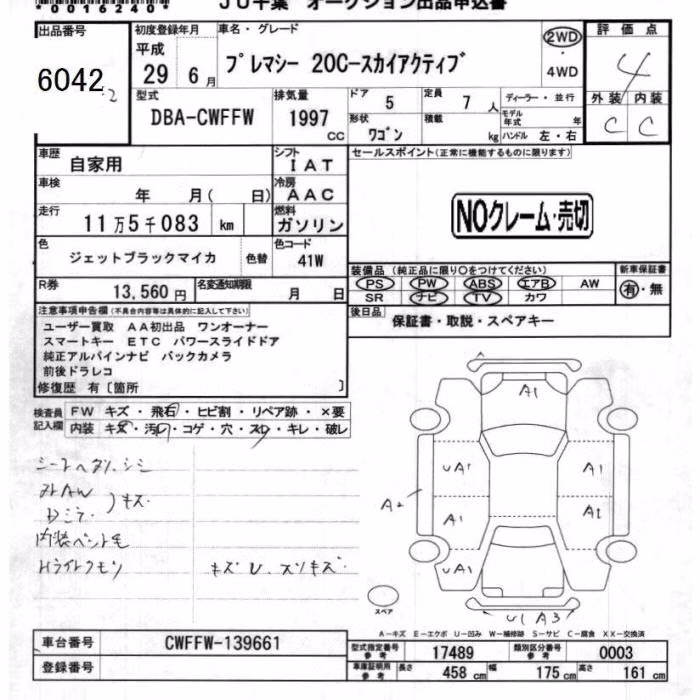 *0016240*
JU千葉 オークション出品申込書
出品番号
6042
初度登録年月
平成
29 6月
車名・グレード
プレマシー 20C-スカイアクティブ
2WD
・
4WD
評価点
4
型式
DBA-CWFFW
排気量
1997
CC
ドア 5
定員 7人
形状
ワゴン
積載 kg
ディーラー・並行
モデル年式 年
ハンドル 左・右
外装 内装
C C
車歴
自家用
シフト
IAT
セールスポイント(正常に機能するものに限ります)
車検
年 月( 日)
冷房
AAC
NOクレーム・売切
走行
11万5千083 km
燃料
ガソリン
色
ジェットブラックマイカ
色替
色コード
41W
装備品(純正品に限り○をつけてください)
新車保証書
PS PW ABS エアB AW
有・無
SR ナビ TV カワ
R券
13,560円
名変通知期限
月 日
後日品
保証書・取説・スペアキー
注意事項申告欄(不具合内容等は具体的に記入して下さい)
ユーザー買取 AA初出品 ワンオーナー
スマートキー ETC パワースライドドア
純正アルパインナビ バックカメラ
前後ドラレコ
修復歴 有〔箇所 〕
検査員記入欄
FW キズ・飛石・ヒビ割・リペア跡・×要
内装 キズ・汚れ・コゲ・穴・スレ・キレ・破レ
シートヘタリ、シミ
キズ
Dミラ
内装ペット毛
Hライトクモリ
キズ U、スリキズ
A1
UA1
A1
A2
A1
A1
UA1
U1 A3
スペア
A-キズ E-エクボ U-凹み W-補修跡 S-サビ C-腐食 XX-交換済
車台番号
CWFFW-139661
登録番号
型式指定番号
参考
17489
類別区分番号
参考
0003
車庫証明用
参考
長さ 458 cm 幅 175 cm 高さ 161 cm